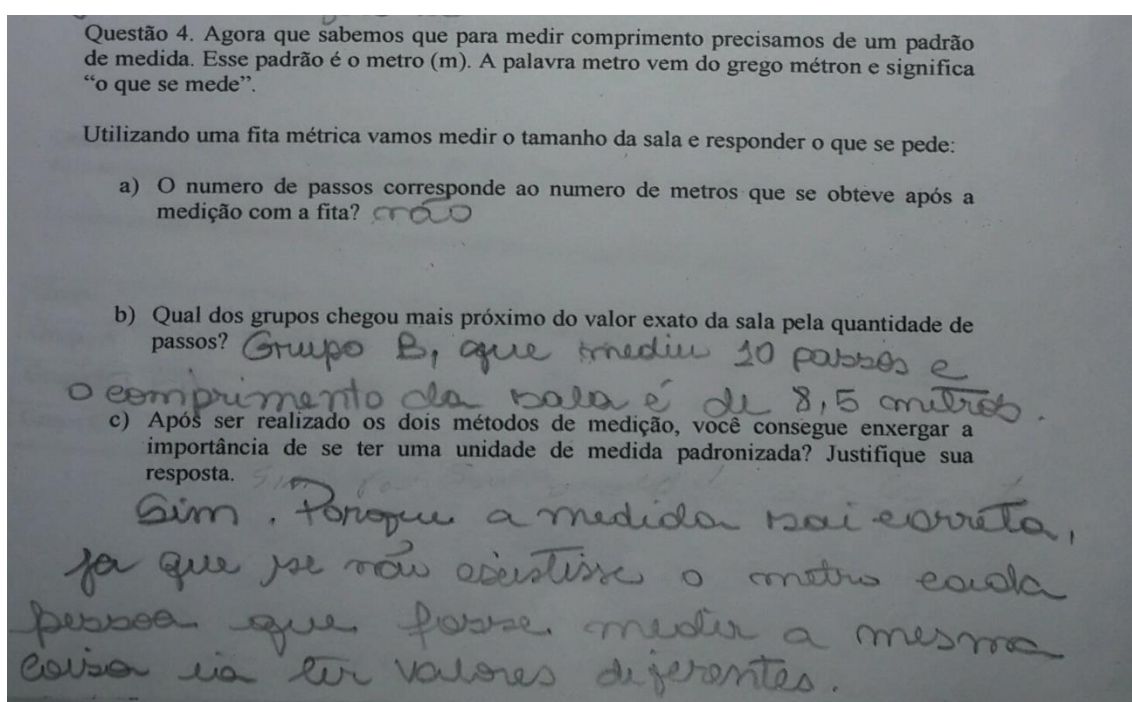 Questão 4. Agora que sabemos que para medir comprimento precisamos de um padrão
de medida. Esse padrão é o metro (m). A palavra metro vem do grego métron e significa
“o que se mede”.
Utilizando uma fita métrica vamos medir o tamanho da sala e responder o que se pede:
a) O numero de passos corresponde ao numero de metros que se obteve após a
medição com a fita? não
b) Qual dos grupos chegou mais próximo do valor exato da sala pela quantidade de
passos? Grupo B, que mediu 10 passos e
o comprimento da sala é de 8,5 metros.
c) Após ser realizado os dois métodos de medição, você consegue enxergar a
importância de se ter uma unidade de medida padronizada? Justifique sua
resposta.
Sim. Porque a medida sai correta,
ja que se não existisse o metro cada
pessoa que fosse medir a mesma
coisa ia ter valores diferentes.